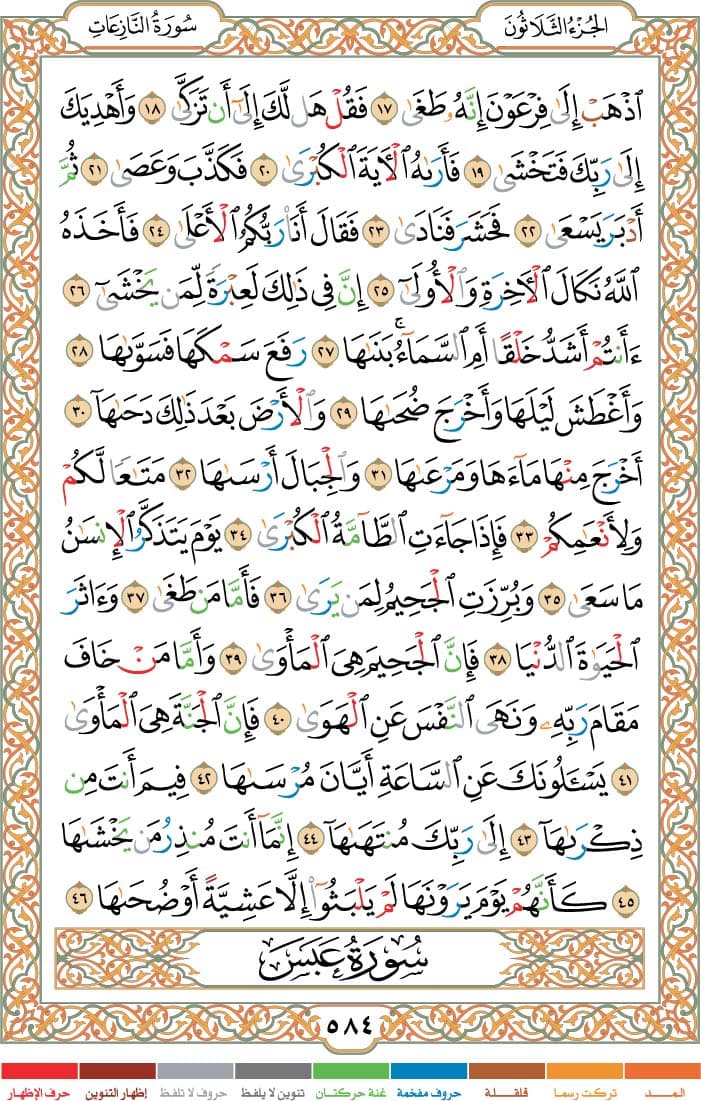 الجُزْءُ الثَّلَاثُونَ
سُورَةُ النَّازِعَاتِ
ٱذْهَبْ إِلَىٰ فِرْعَوْنَ إِنَّهُۥ طَغَىٰ ١٧ فَقُلْ هَل لَّكَ إِلَىٰٓ أَن تَزَكَّىٰ ١٨ وَأَهْدِيَكَ
إِلَىٰ رَبِّكَ فَتَخْشَىٰ ١٩ فَأَرَىٰهُ ٱلْءَايَةَ ٱلْكُبْرَىٰ ٢٠ فَكَذَّبَ وَعَصَىٰ ٢١ ثُمَّ
أَدْبَرَ يَسْعَىٰ ٢٢ فَحَشَرَ فَنَادَىٰ ٢٣ فَقَالَ أَنَا۠ رَبُّكُمُ ٱلْأَعْلَىٰ ٢٤ فَأَخَذَهُ
ٱللَّهُ نَكَالَ ٱلْءَاخِرَةِ وَٱلْأُولَىٰٓ ٢٥ إِنَّ فِى ذَٰلِكَ لَعِبْرَةً لِّمَن يَخْشَىٰٓ ٢٦
ءَأَنتُمْ أَشَدُّ خَلْقًا أَمِ ٱلسَّمَآءُ ۚ بَنَىٰهَا ٢٧ رَفَعَ سَمْكَهَا فَسَوَّىٰهَا ٢٨
وَأَغْطَشَ لَيْلَهَا وَأَخْرَجَ ضُحَىٰهَا ٢٩ وَٱلْأَرْضَ بَعْدَ ذَٰلِكَ دَحَىٰهَآ ٣٠
أَخْرَجَ مِنْهَا مَآءَهَا وَمَرْعَىٰهَا ٣١ وَٱلْجِبَالَ أَرْسَىٰهَا ٣٢ مَتَٰعًا لَّكُمْ
وَلِأَنْعَٰمِكُمْ ٣٣ فَإِذَا جَآءَتِ ٱلطَّآمَّةُ ٱلْكُبْرَىٰ ٣٤ يَوْمَ يَتَذَكَّرُ ٱلْإِنسَٰنُ
مَا سَعَىٰ ٣٥ وَبُرِّزَتِ ٱلْجَحِيمُ لِمَن يَرَىٰ ٣٦ فَأَمَّا مَن طَغَىٰ ٣٧ وَءَاثَرَ
ٱلْحَيَوٰةَ ٱلدُّنْيَا ٣٨ فَإِنَّ ٱلْجَحِيمَ هِىَ ٱلْمَأْوَىٰ ٣٩ وَأَمَّا مَنْ خَافَ
مَقَامَ رَبِّهِۦ وَنَهَى ٱلنَّفْسَ عَنِ ٱلْهَوَىٰ ٤٠ فَإِنَّ ٱلْجَنَّةَ هِىَ ٱلْمَأْوَىٰ
٤١ يَسْـَٔلُونَكَ عَنِ ٱلسَّاعَةِ أَيَّانَ مُرْسَىٰهَا ٤٢ فِيمَ أَنتَ مِن
ذِكْرَىٰهَآ ٤٣ إِلَىٰ رَبِّكَ مُنتَهَىٰهَآ ٤٤ إِنَّمَآ أَنتَ مُنذِرُ مَن يَخْشَىٰهَا
٤٥ كَأَنَّهُمْ يَوْمَ يَرَوْنَهَا لَمْ يَلْبَثُوٓا۟ إِلَّا عَشِيَّةً أَوْ ضُحَىٰهَا ٤٦
سُورَةُ عَبَسَ
٥٨٤
المـــد
تركت رسما
قلقـــلة
حروف مفخمة
غنة حركتان
تنوين لا يلفظ
حروف لا تلفظ
إظهار التنوين
حرف الإظهار